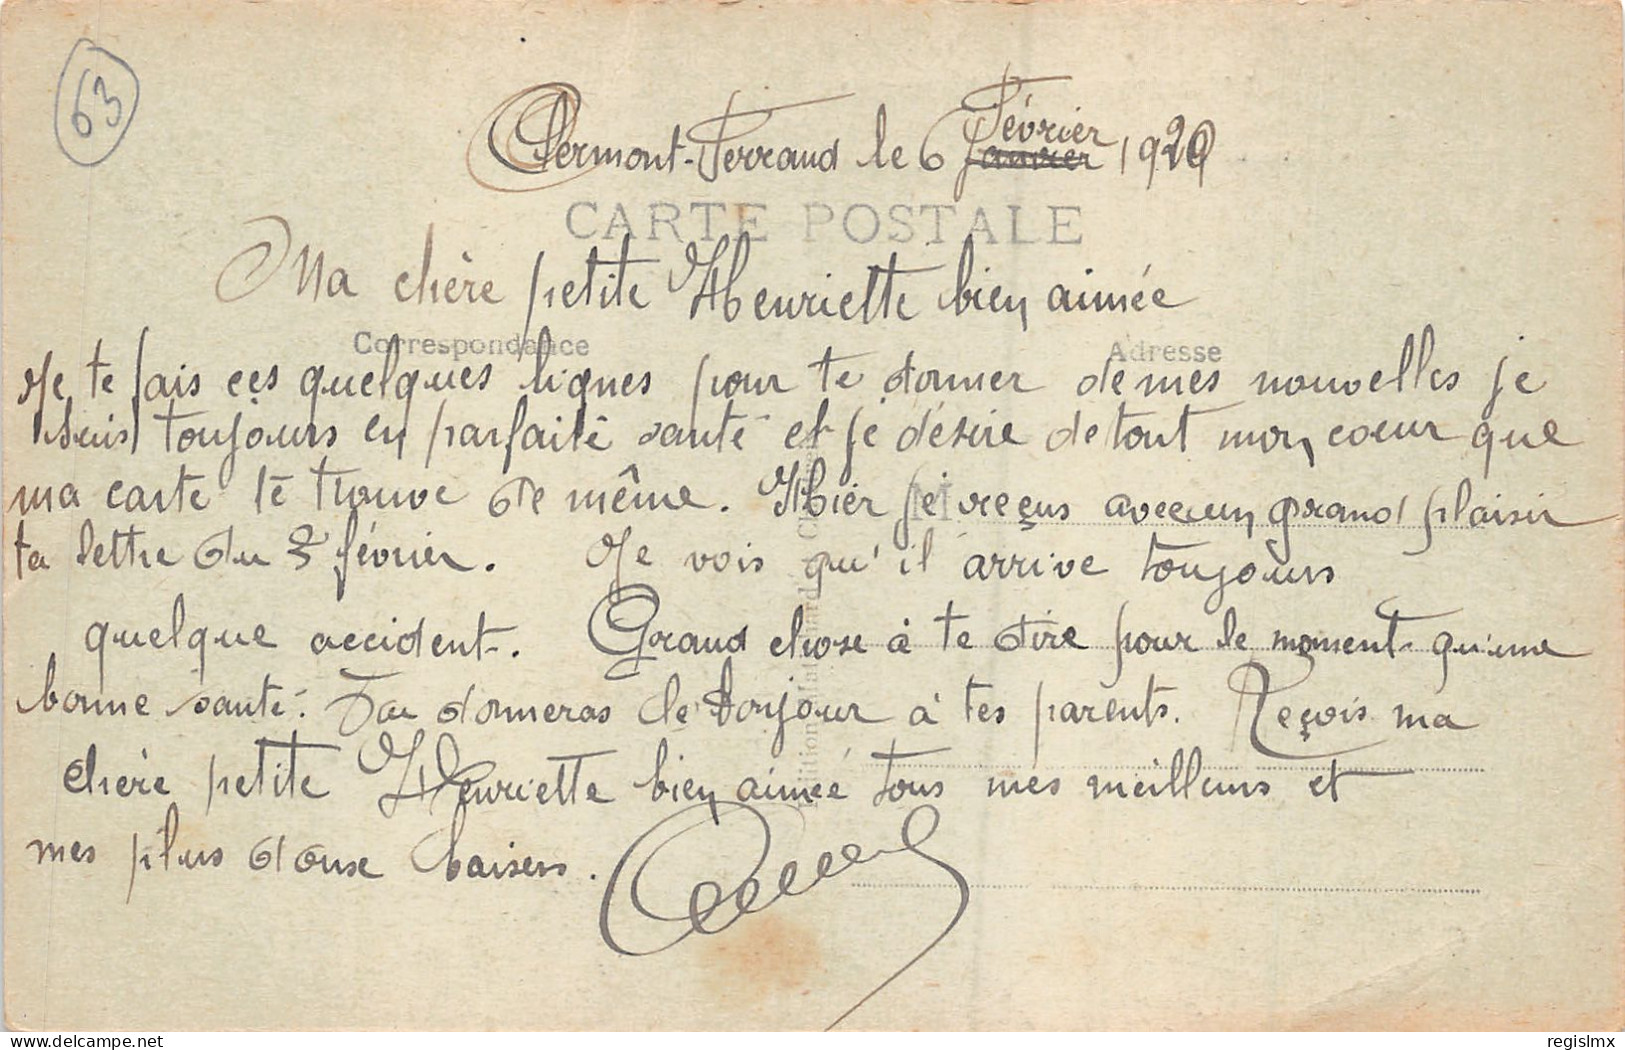 63
Clermont-Ferrand le 6 Février Janvier 1920
CARTE POSTALE
Ma chère petite Henriette bien aimée
Correspondance
Adresse
Je te fais ces quelques lignes pour te donner de mes nouvelles je
suis toujours en parfaite santé et je désire de tout mon coeur que
ma carte te trouve de même. Hier je reçus avec un grand plaisir
ta lettre du 3 février. Je vois qu'il arrive toujours
quelque accident. Grand chose à te dire pour le moment qu'une
bonne santé. Tu donneras le bonjour à tes parents. Reçois ma
chère petite Henriette bien aimée tous mes meilleurs et
mes plus doux baisers.
delcampe.net
regislmx